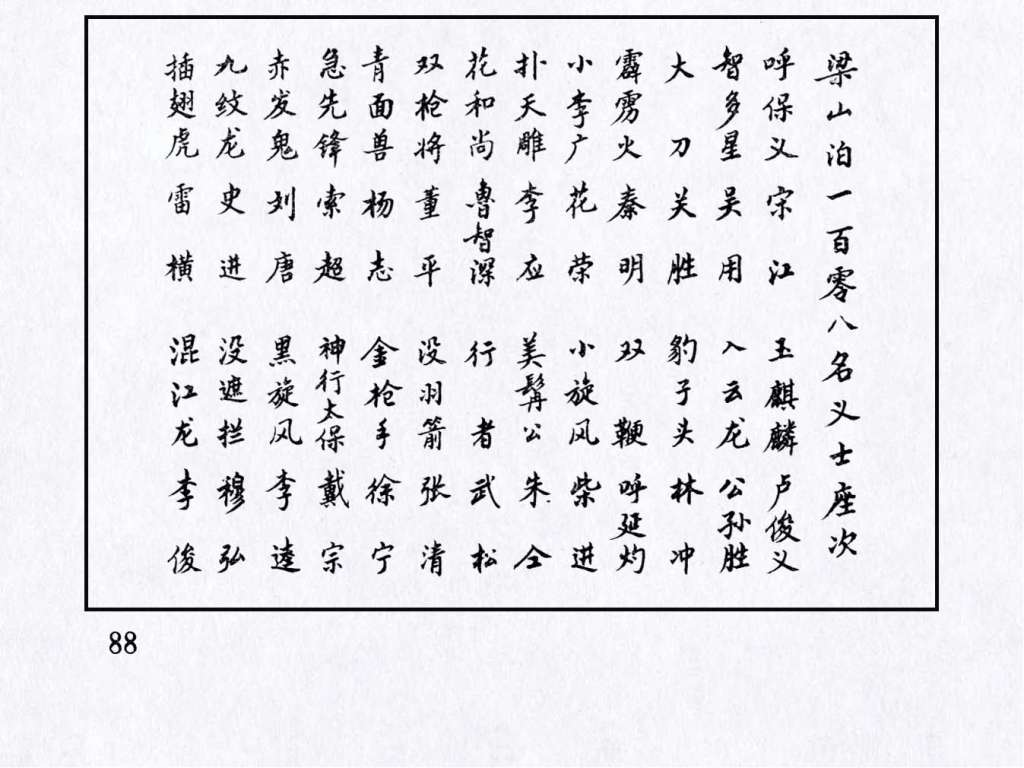 梁山泊一百零八名义士座次
呼保义宋江 玉麒麟卢俊义
智多星吴用 入云龙公孙胜
大刀关胜 豹子头林冲
霹雳火秦明 双鞭呼延灼
小李广花荣 小旋风柴进
扑天雕李应 美髯公朱仝
花和尚鲁智深 行者武松
双枪将董平 没羽箭张清
青面兽杨志 金枪手徐宁
急先锋索超 神行太保戴宗
赤发鬼刘唐 黑旋风李逵
九纹龙史进 没遮拦穆弘
插翅虎雷横 混江龙李俊
88